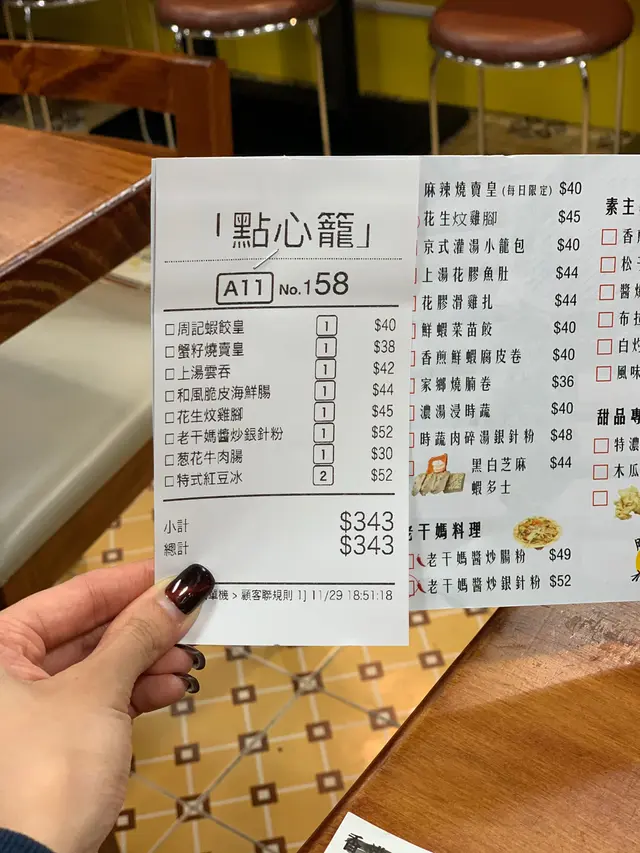 「點心籠」
A11 No.158
□周記蝦餃皇 1 $40
□蟹籽燒賣皇 1 $38
□上湯雲吞 1 $42
□和風脆皮海鮮腸 1 $44
□花生炆雞腳 1 $45
□老干媽醬炒銀針粉 1 $52
□葱花牛肉腸 1 $30
□特式紅豆冰 2 $52
小計 $343
總計 $343
單機 > 顧客聯規則 1] 11/29 18:51:18
麻辣燒賣皇(每日限定) $40
花生炆雞腳 $45
京式灌湯小籠包 $40
上湯花膠魚肚 $44
花膠滑雞扎 $44
鮮蝦菜苗餃 $40
香煎鮮蝦腐皮卷 $40
家鄉燒腩卷 $36
濃湯浸時蔬 $40
時蔬肉碎湯銀針粉 $48
黑白芝麻 $44
蝦多士
老干媽料理
老干媽醬炒腸粉 $49
老干媽醬炒銀針粉 $52
素主
□香
□松
□醬
□布
□白
□風
甜品專
□特濃
□木瓜
□